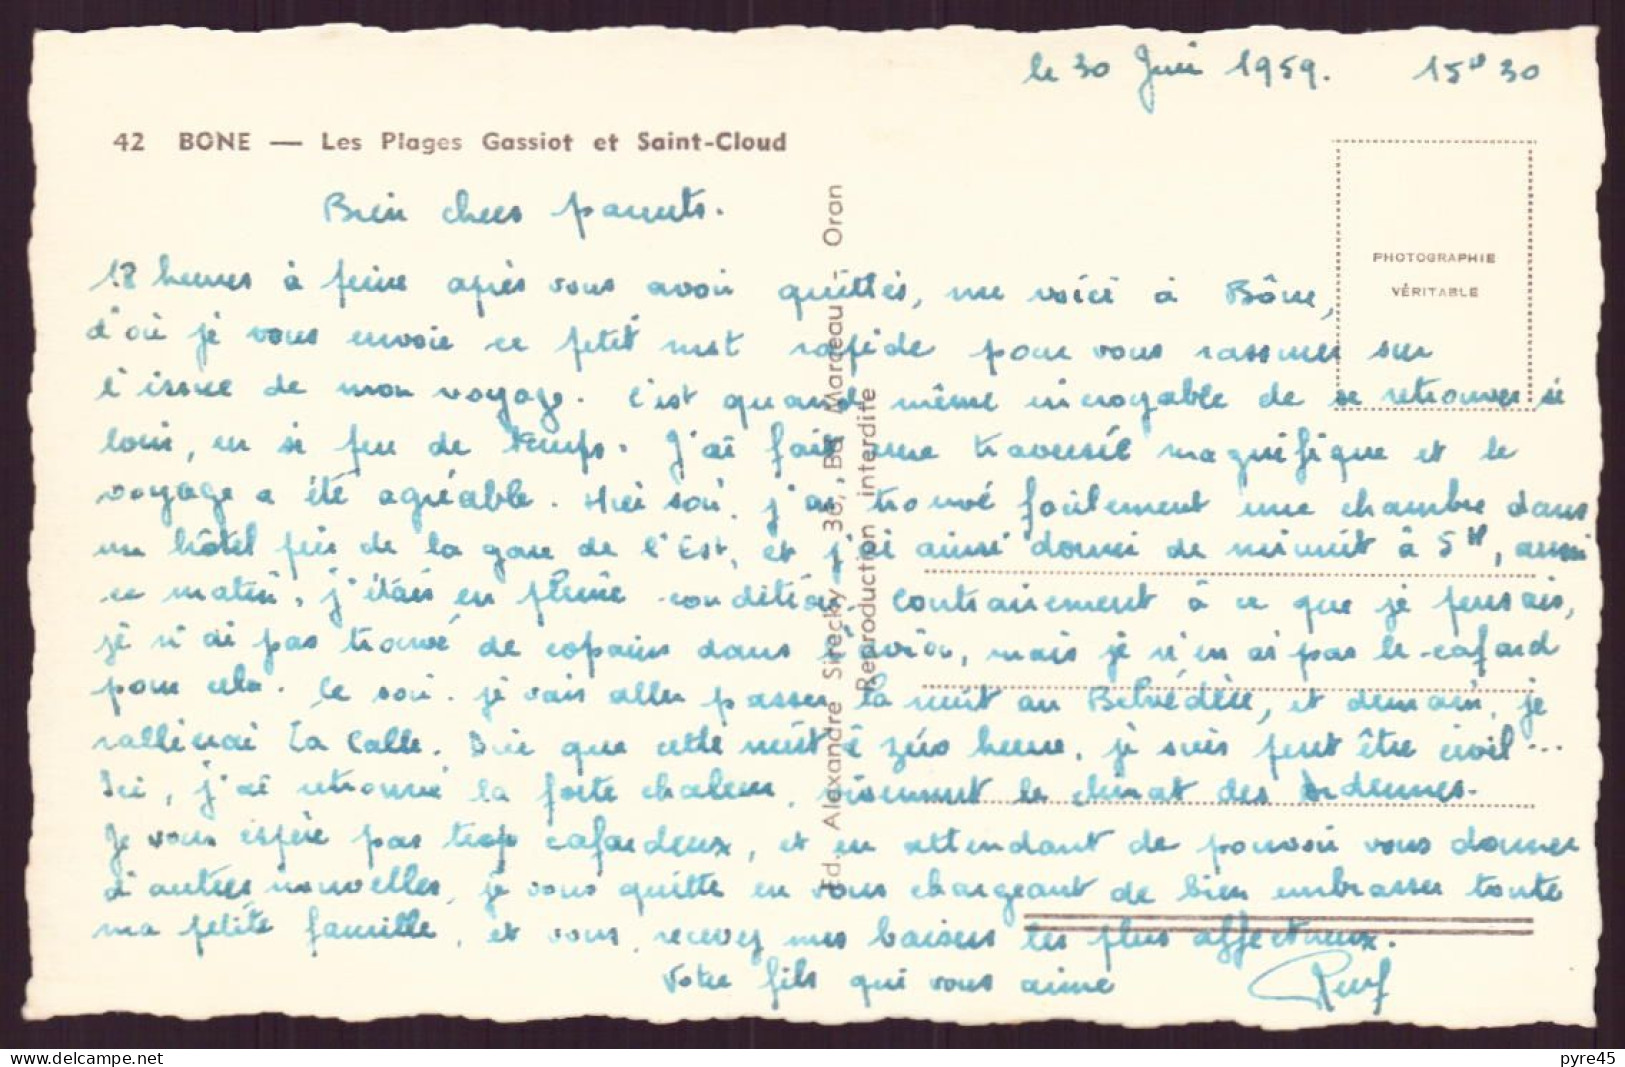 le 30 Juin 1959. 15H30
42 BONE — Les Plages Gassiot et Saint-Cloud
PHOTOGRAPHIE
VÉRITABLE
Bien chers parents.
18 heures à peine après vous avoir quittés, me voici à Bône,
d'où je vous envoie ce petit mot rapide pour vous rassurer sur
l'issue de mon voyage. C'est quand même incroyable de se retrouver si
loin, en si peu de temps. J'ai fait une traversée magnifique et le
voyage a été agréable. Hier soir, j'ai trouvé facilement une chambre dans
un hôtel près de la gare de l'Est, et j'ai ainsi dormi de minuit à 5H, aussi
ce matin, j'étais en pleine condition. Contrairement à ce que je pensais,
je n'ai pas trouvé de copains dans l'avion, mais je n'en ai pas le cafard
pour cela. Ce soir je vais aller passer la nuit au Belvédère, et demain, je
rallierai La Calle. Dire que cette nuit à zéro heure, je suis peut être civil...
Ici, j'ai retrouvé la forte chaleur, vivement le climat des Ardennes.
Je vous espère pas trop cafardeux, et en attendant de pouvoir vous donner
d'autres nouvelles, je vous quitte en vous chargeant de bien embrasser toute
ma petite famille, et vous, recevez mes baisers les plus affectueux.
Votre fils qui vous aime
Ed. Alexandre Sirecky - 36, Bd Marceau - Oran
Reproduction interdite
www.delcampe.net
pyre45